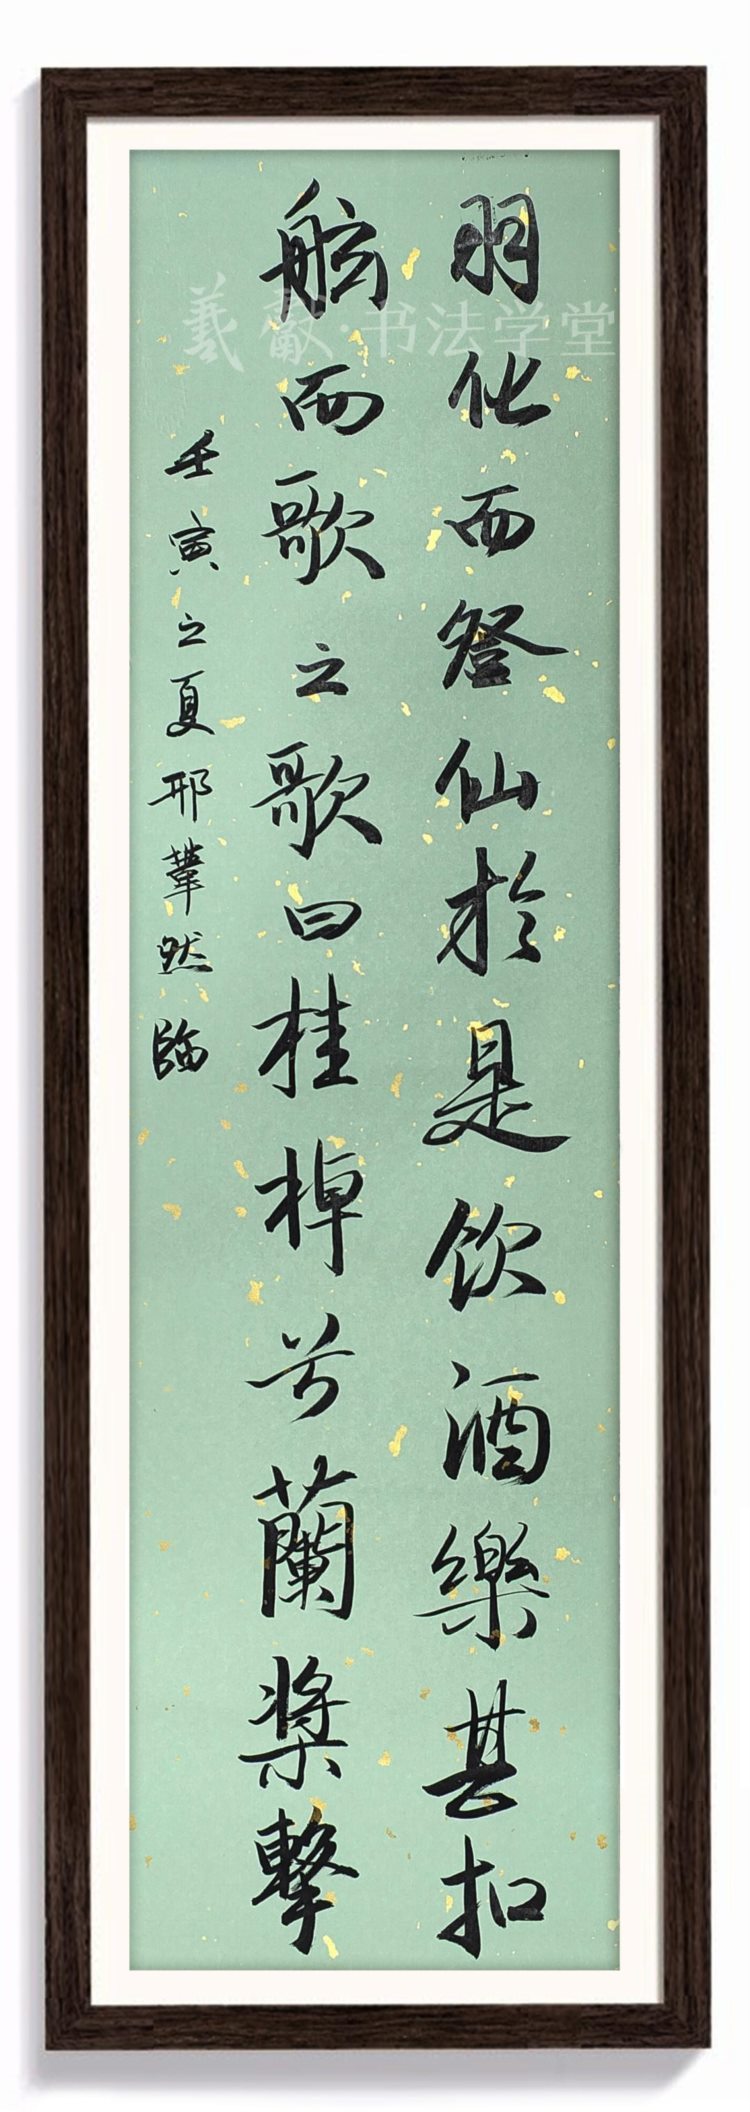 羲獻·书法学堂
羽化而登仙於是饮酒樂甚扣
舷而歌之歌曰桂棹兮蘭槳擊
壬寅之夏邢然臨